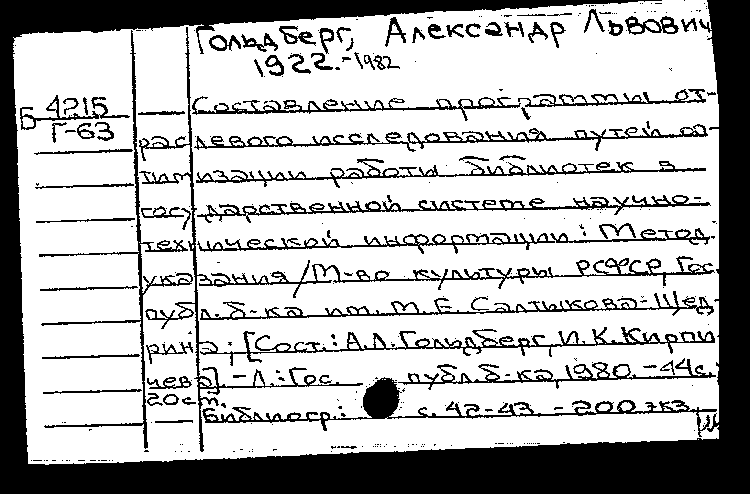 Гольдберг, Александр Львович
1922.-1982
Б 4215
Г-63
Составление программы от-
раслевого исследования путей оп-
тимизации работы библиотек в
государственной системе научно-
технической информации: Метод.
указания/М-во культуры РСФСР, Гос.
публ. б-ка им. М. Е. Салтыкова-Щед-
рина; [Сост.: А.Л. Гольдберг, И.К. Кирпи-
чева]. - Л.: Гос. публ. б-ка, 1980. - 44с.;
20см.
Библиогр.: с. 42-43. - 200 экз.